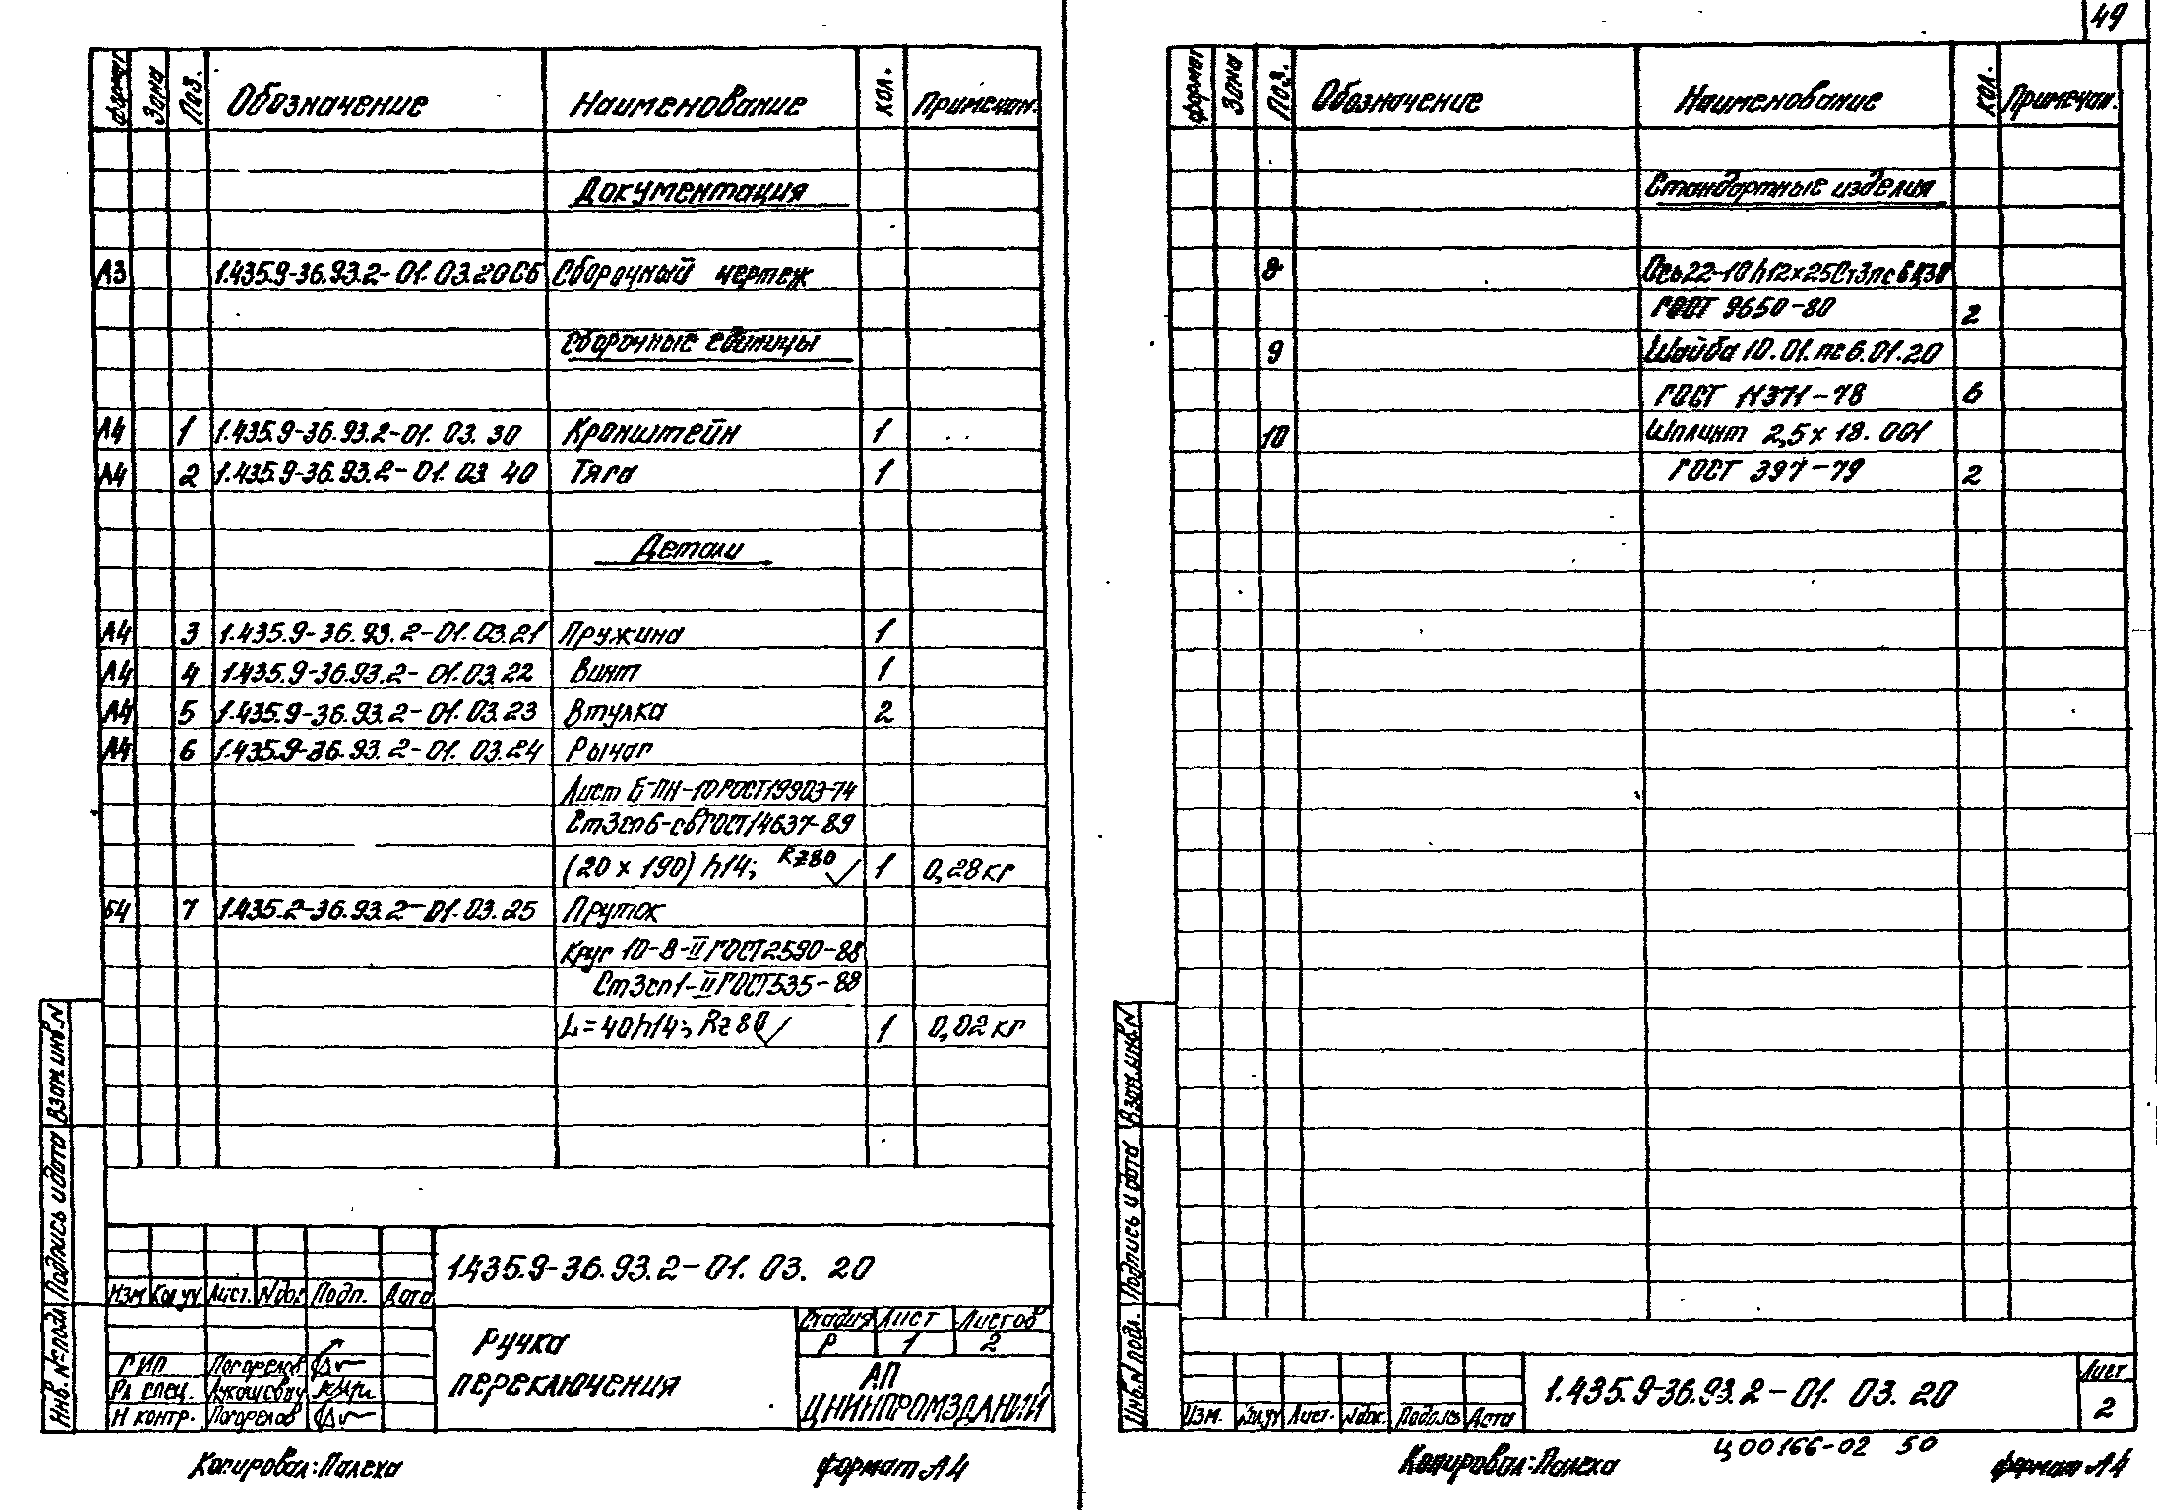 49
Формат Зона Поз. Обозначение Наименование Кол. Примечан.
Документация
А3 1.435.9-36.93.2-01.03.20СБ Сборочный чертеж
Сборочные единицы
А4 1 1.435.9-36.93.2-01.03.30 Кронштейн 1
А4 2 1.435.9-36.93.2-01.03.40 Тяга 1
Детали
А4 3 1.435.9-36.93.2-01.03.21 Пружина 1
А4 4 1.435.9-36.93.2-01.03.22 Винт 1
А4 5 1.435.9-36.93.2-01.03.23 Втулка 2
А4 6 1.435.9-36.93.2-01.03.24 Рычаг
Лист Б-ПН-10 ГОСТ19903-74
Ст3сп6-св ГОСТ14637-89
(20 х 190) h14; Rz80 1 0,28 кг
Б4 7 1.435.2-36.93.2-01.03.25 Пруток
Круг 10-В-II ГОСТ2590-88
Ст3сп1-II ГОСТ535-88
L=40h14; Rz80 1 0,02 кг
Взам. инв. N
Подпись и дата
Инв. № подл.
1.435.9-36.93.2-01.03.20
Изм Кол уч Лист. N док Подп. Дата
Ручка
переключения
Стадия Лист Листов
Р 1 2
АП
ЦНИИПРОМЗДАНИЙ
ГИП Погорелов
Гл. спец.
Н контр. Погорелов
Копировал: Палеха Формат А4
Формат Зона Поз. Обозначение Наименование Кол. Примечан.
Стандартные изделия
8 Ось 22-10h12х25Ст3пс6
ГОСТ 9650-80 2
9 Шайба 10.01.пс6.01.20
ГОСТ 11371-78 6
10 Шплинт 2,5х18.001
ГОСТ 397-79 2
Взам. инв. N
Подпись и дата
Инв. N подл.
Изм. Кол.уч Лист. N док. Подпись Дата
1.435.9-36.93.2-01.03.20
Лист
2
Ц00166-02 50
Копировал: Палеха Формат А4